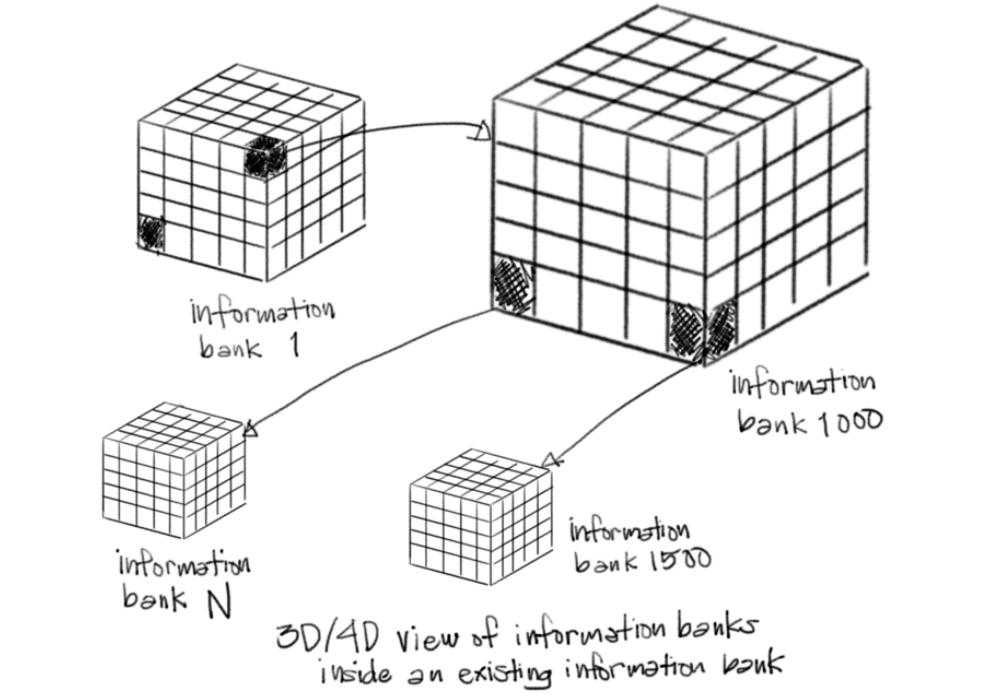 information
bank 1
information
bank 1000
information
bank N
information
bank 1500
3D/4D view of information banks
inside an existing information bank